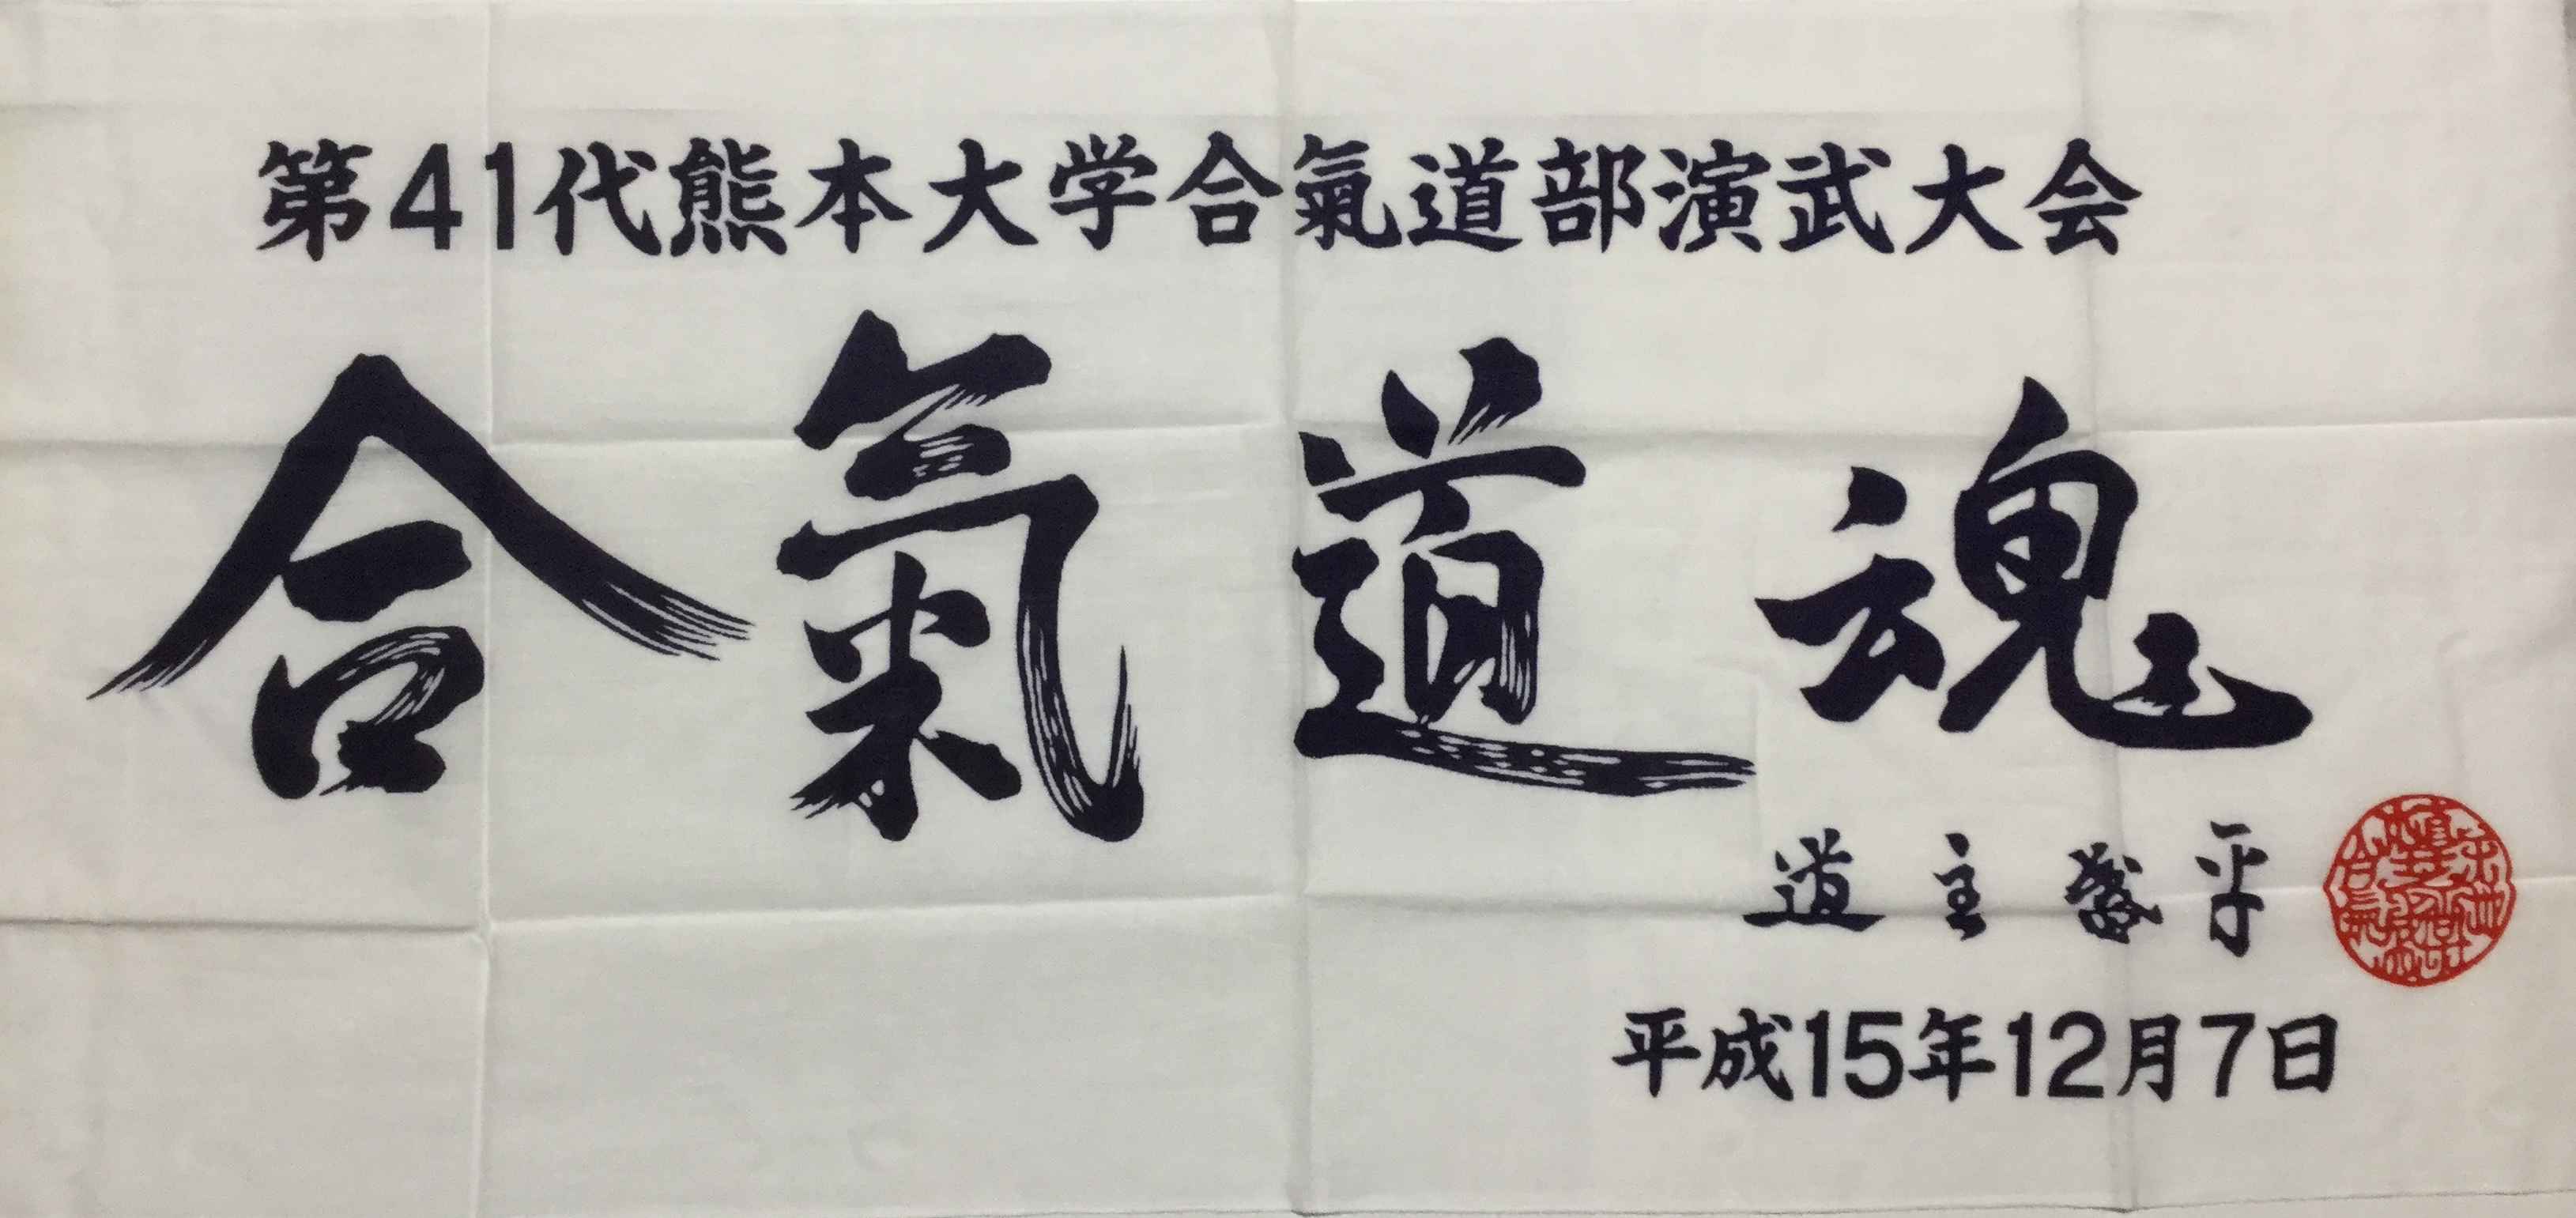 第41代熊本大学合氣道部演武大会
合氣道魂
道主盛平
平成15年12月7日